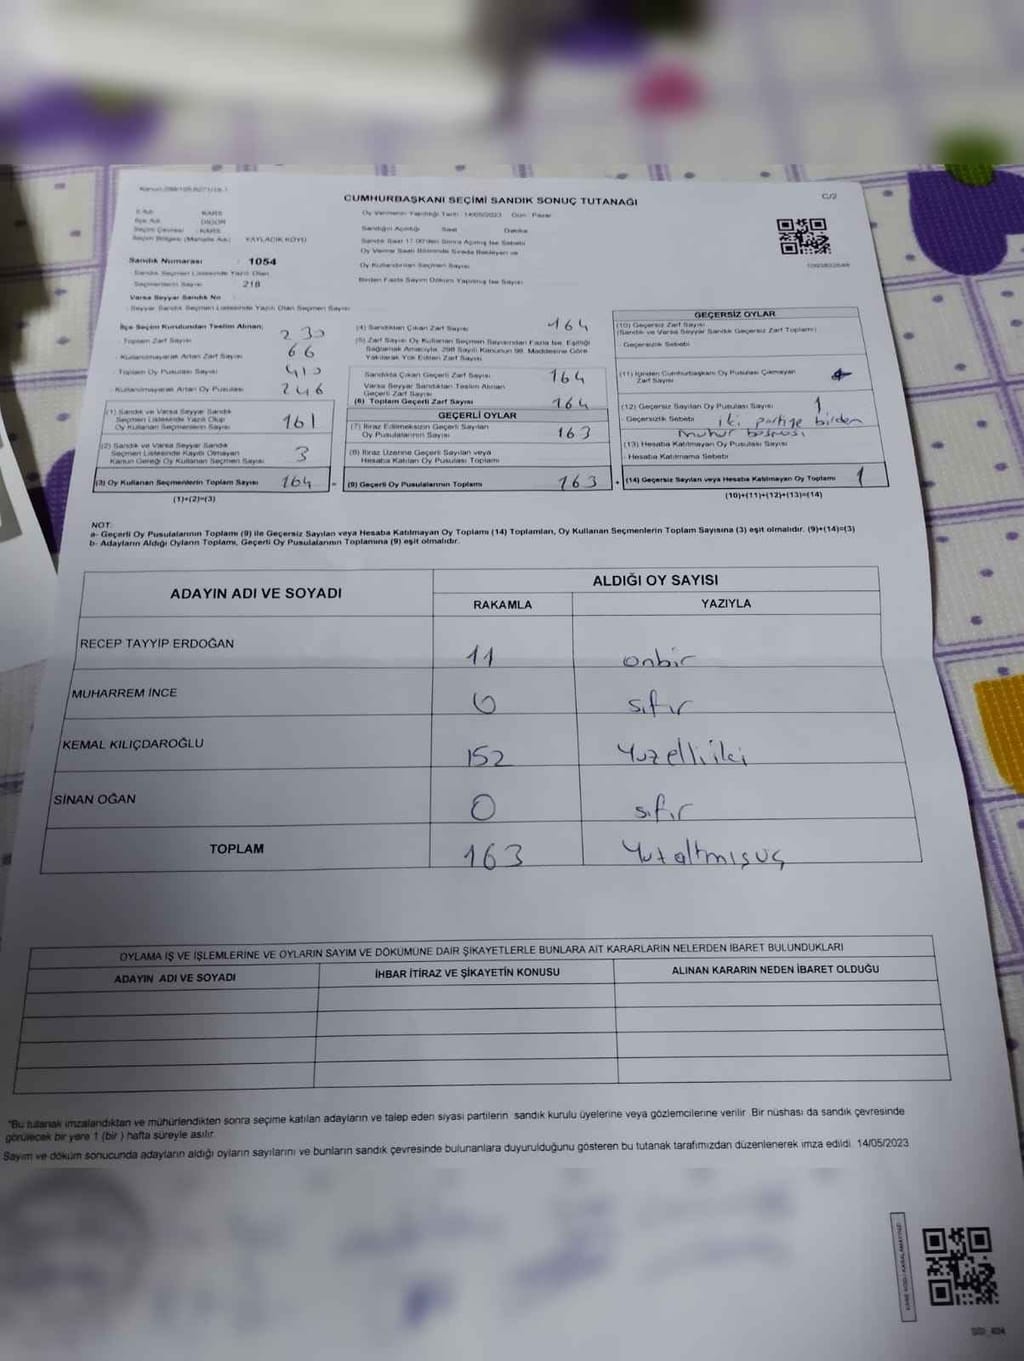 CUMHURBAŞKANI SEÇİMİ SANDIK SONUÇ TUTANAĞI
C/2
Oy Vermenin Yapıldığı Tarih: 14/05/2023 Gün: Pazar
İl Adı : KARS
İlçe Adı : DİGOR
Seçim Çevresi : KARS
Seçim Bölgesi (Mahalle Adı) : YAYLACIK KÖYÜ
Sandığın Açıldığı Saat Dakika
Sandık Saat 17.00'den Sonra Açılmış İse Sebebi
Sandık Numarası : 1054
Oy Kullandırılan Seçmen Sayısı
Sandık Seçmen Listesinde Yazılı Olan
Seçmenlerin Sayısı : 218
Birden Fazla Sayım Döküm Yapılmış İse Sayısı
Varsa Seyyar Sandık No
Seyyar Sandık Seçmen Listesinde Yazılı Olan Seçmen Sayısı
İlçe Seçim Kurulundan Teslim Alınan;
Toplam Zarf Sayısı 230
Kullanılmayarak Artan Zarf Sayısı 66
Toplam Oy Pusulası Sayısı 410
Kullanılmayarak Artan Oy Pusulası 246
(1) Sandık ve Varsa Seyyar Sandık
Seçmen Listesinde Yazılı Olup
Oy Kullanan Seçmenlerin Sayısı 161
(2) Sandık ve Varsa Seyyar Sandık
Seçmen Listesinde Kayıtlı Olmayan
Kanun Gereği Oy Kullanan Seçmen Sayısı 3
(3) Oy Kullanan Seçmenlerin Toplam Sayısı 164
(1)+(2)=(3)
(4) Sandıktan Çıkan Zarf Sayısı 164
(5) Zarf Sayısı Oy Kullanan Seçmen Sayısından Fazla İse, Eşitliği
Sağlamak Amacıyla, 298 Sayılı Kanunun 98. Maddesine Göre
Yakılarak Yok Edilen Zarf Sayısı
Sandıkta Çıkan Geçerli Zarf Sayısı 164
Varsa Seyyar Sandıktan Teslim Alınan
Geçerli Zarf Sayısı
(6) Toplam Geçerli Zarf Sayısı 164
GEÇERLİ OYLAR
(7) İtiraz Edilmeksizin Geçerli Sayılan
Oy Pusulalarının Toplamı 163
(8) İtiraz Üzerine Geçerli Sayılan veya
Hesaba Katılan Oy Pusulası Toplamı
= (9) Geçerli Oy Pusulalarının Toplamı 163
GEÇERSİZ OYLAR
(10) Geçersiz Zarf Sayısı
(Sandık ve Varsa Seyyar Sandık Geçersiz Zarf Toplamı)
Geçersizlik Sebebi
(11) İçinden Cumhurbaşkanı Oy Pusulası Çıkmayan
Zarf Sayısı
(12) Geçersiz Sayılan Oy Pusulası Sayısı 1
Geçersizlik Sebebi iki partiye birden
mühür basması
(13) Hesaba Katılmayan Oy Pusulası Sayısı
Hesaba Katılmama Sebebi
+ (14) Geçersiz Sayılan veya Hesaba Katılmayan Oy Toplamı 1
(10)+(11)+(12)+(13)=(14)
NOT:
a- Geçerli Oy Pusulalarının Toplamı (9) ile Geçersiz Sayılan veya Hesaba Katılmayan Oy Toplamı (14) Toplamları, Oy Kullanan Seçmenlerin Toplam Sayısına (3) eşit olmalıdır. (9)+(14)=(3)
b- Adayların Aldığı Oyların Toplamı, Geçerli Oy Pusulalarının Toplamına (9) eşit olmalıdır.
ADAYIN ADI VE SOYADI
ALDIĞI OY SAYISI
RAKAMLA YAZIYLA
RECEP TAYYİP ERDOĞAN 11 onbir
MUHARREM İNCE 0 sıfır
KEMAL KILIÇDAROĞLU 152 yüzelliiki
SİNAN OĞAN 0 sıfır
TOPLAM 163 yüzaltmışüç
OYLAMA İŞ VE İŞLEMLERİNE VE OYLARIN SAYIM VE DÖKÜMÜNE DAİR ŞİKAYETLERLE BUNLARA AİT KARARLARIN NELERDEN İBARET BULUNDUKLARI
ADAYIN ADI VE SOYADI İHBAR İTİRAZ VE ŞİKAYETİN KONUSU ALINAN KARARIN NEDEN İBARET OLDUĞU
"Bu tutanak imzalandıktan ve mühürlendikten sonra seçime katılan adayların ve talep eden siyasi partilerin sandık kurulu üyelerine veya gözlemcilerine verilir. Bir nüshası da sandık çevresinde
görülecek bir yere 1 (bir) hafta süreyle asılır.
Sayım ve döküm sonucunda adayların aldığı oyların sayılarını ve bunların sandık çevresinde bulunanlara duyurulduğunu gösteren bu tutanak tarafımızdan düzenlenerek imza edildi. 14/05/2023